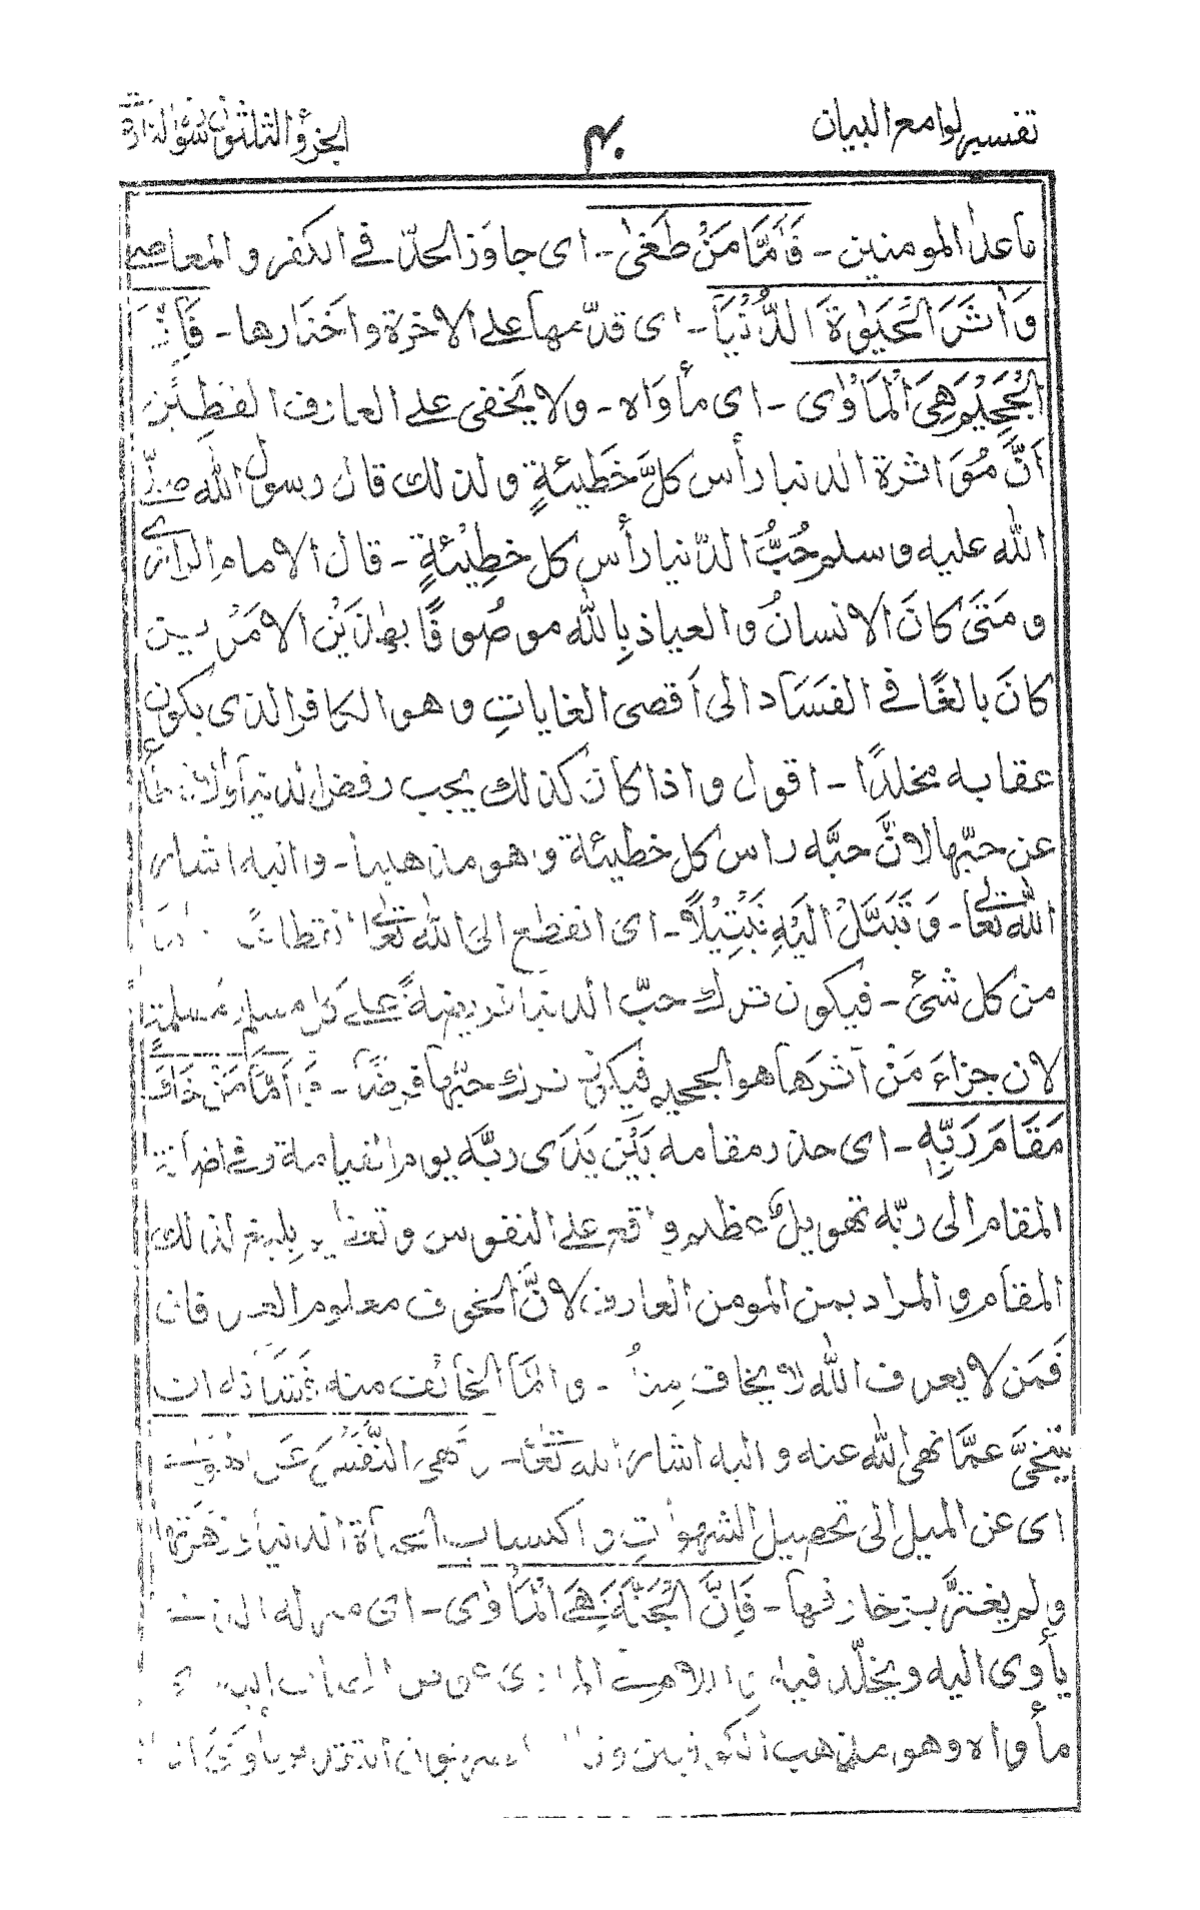 تفسير لوامع البيان
٤٠
الجزؤ الثلثون سؤالنازعات
ما عدا المومنين - فَأَمَّا مَنْ طَغىٰ - اى جاوَز الحدّ فى الكفر و المعاصى
وَاٰثَرَ الْحَيٰوةَ الدُّنْيَا - اى قدّمها على الاخرة و اختارها - فَاِنَّ
الْجَحِيْمَ هِىَ الْمَاْوٰى - اى مأواه - ولا يَخفى على العارف الفَطِنِ
اَنَّ مُوَاثرة الدنيا رأس كلَّ خَطيئةٍ ولذلك قال رسول الله صلّى
الله عليه و سلم حُبُّ الدّنيا رأس كل خطِيْئةٍ - قال الامام الرازى
و مَتىٰ كانَ الانسانُ و العياذ بِالله موصُوفًا بهٰذَيْنِ الامرَين
كانَ بالغًا فى الفسَاد الى اَقصى الغاياتِ و هو الكافر الذى يكون
عقابه مخلدًا - اقول و اذا كان كذلك يجب رفض الدنيا
عن حبّها لانَّ حبَّه راس كل خطيئة و هو مذهبنا - و اليه اشار
الله تعالى - وَ تَبَتَّلْ اِلَيْهِ تَبْتِيْلًا - اى انقطع الى الله تعالى انقطاعً
من كل شئ - فيكون ترك حبّ الدنيا فريضةً على كل مسلم و مسلمة
لان جزاءَ مَنْ آثرَها هو الجحيم فيكون ترك حبّها فرضًا - وَ اَمَّا مَنْ خَافَ
مَقَامَ رَبِّهٖ - اى حذر مقامه بَيْنَ يدَى ربّه يوم القيامة و فى اضافة
المقام الى ربّه تهويل عظيم واقع على النفوس و تعظيم بليغ لذلك
المقام و المراد بمن المومن العارف لانَّ الخوف معلوم العرفان
فَمَن لا يعرف الله لا يخاف منه - و امّا الخائف منه ان
يتنحىَّ عمَّا نهى الله عنه و اليه اشار الله تعالى - وَ نَهَى النَّفْسَ عَنِ الْهَوٰى
اى عن الميل الى تحصيل الشهواتِ و اكتساب الدنيا و زهرتها
و لم يغترَّ بزخارفها - فَاِنَّ الْجَنَّةَ هِىَ الْمَاْوٰى - اى منزله الذى
يأوى اليه و يخلّد فيه
مأواه و هو مذهب الكوفيين